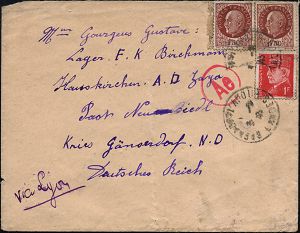 Mme Gourgues Gustave:
Lager. F. K Birckmann
Hauskirchen. A. D. Zaya
Post Neusiedl
Kries Gänserdorf. N. D
Deutsches Reich
via Lyon
Ae